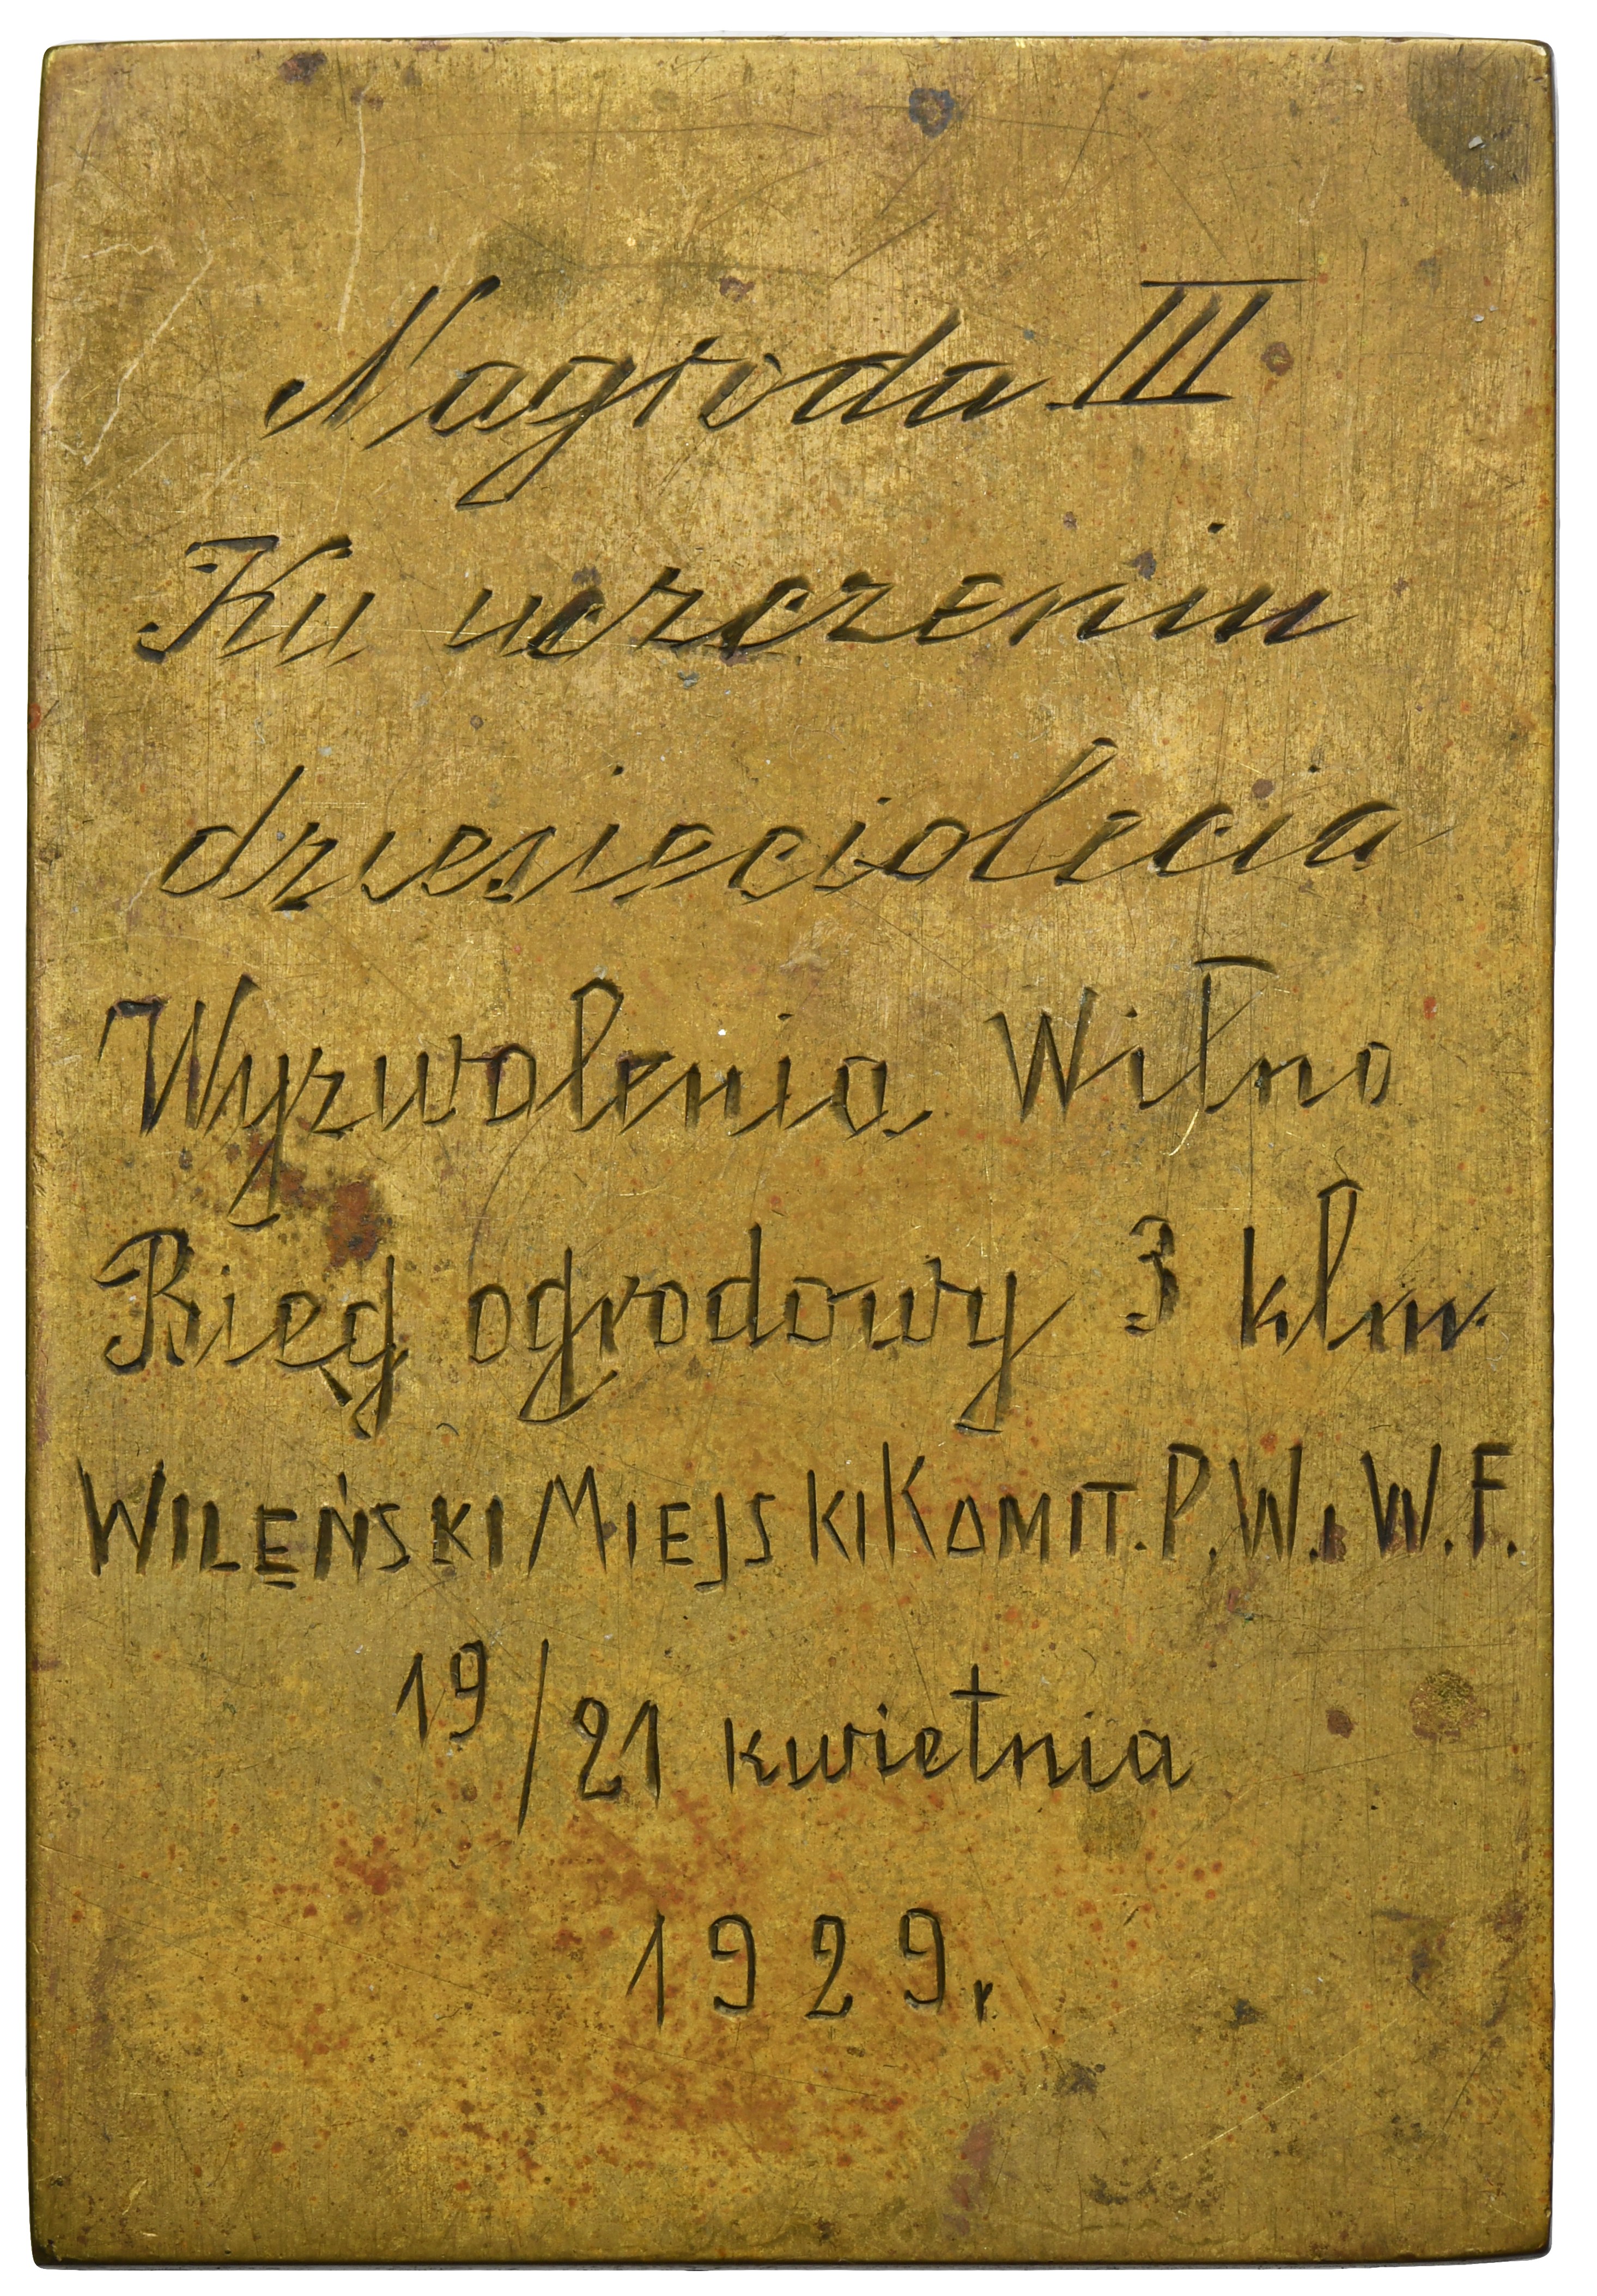 Nagroda III
Ku uczczeniu
dziesięciolecia
Wyzwolenia Wiłno
Bięg ogrodowy 3 klm.
WILĘŃSKI MIEJSKI KOMIT. P.W. i W.F.
19/21 kwietnia
1929 r